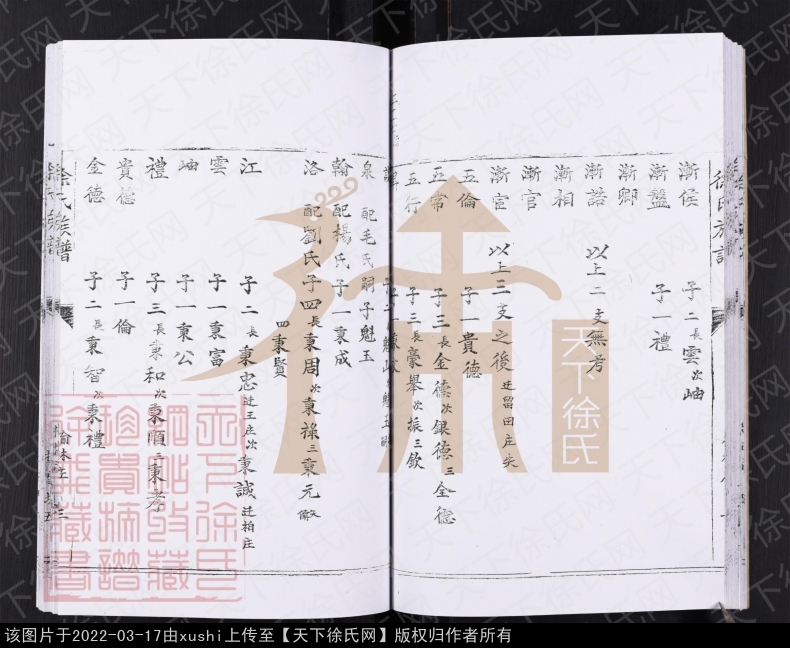 徐氏族譜
漸侯 子二 長雲 次岫
漸盤 子一禮
漸卿
漸誥 以上二支無考
漸相
漸官
漸宦 以上三支之後 迁留田庄失
五倫 子一貴德
五常 子三 長金德 次銀德 三全德
五行 子三 長豪舉 次振 三欽
泉 配毛氏嗣子魁玉
翰 配楊氏子一秉成
洛 配劉氏子四 長秉周 次秉祿 三秉元
四秉賢
江 子二 長秉忠 迁王庄 次秉誠 迁柏庄
雲 子一秉富
岫 子一秉公
禮 子三 長秉和 次秉順 三秉孝
貴德 子一倫
金德 子二 長秉智 次秉禮
徐氏族譜
天下徐氏
天下徐氏网
该图片于2022-03-17由xushi上传至【天下徐氏网】版权归作者所有